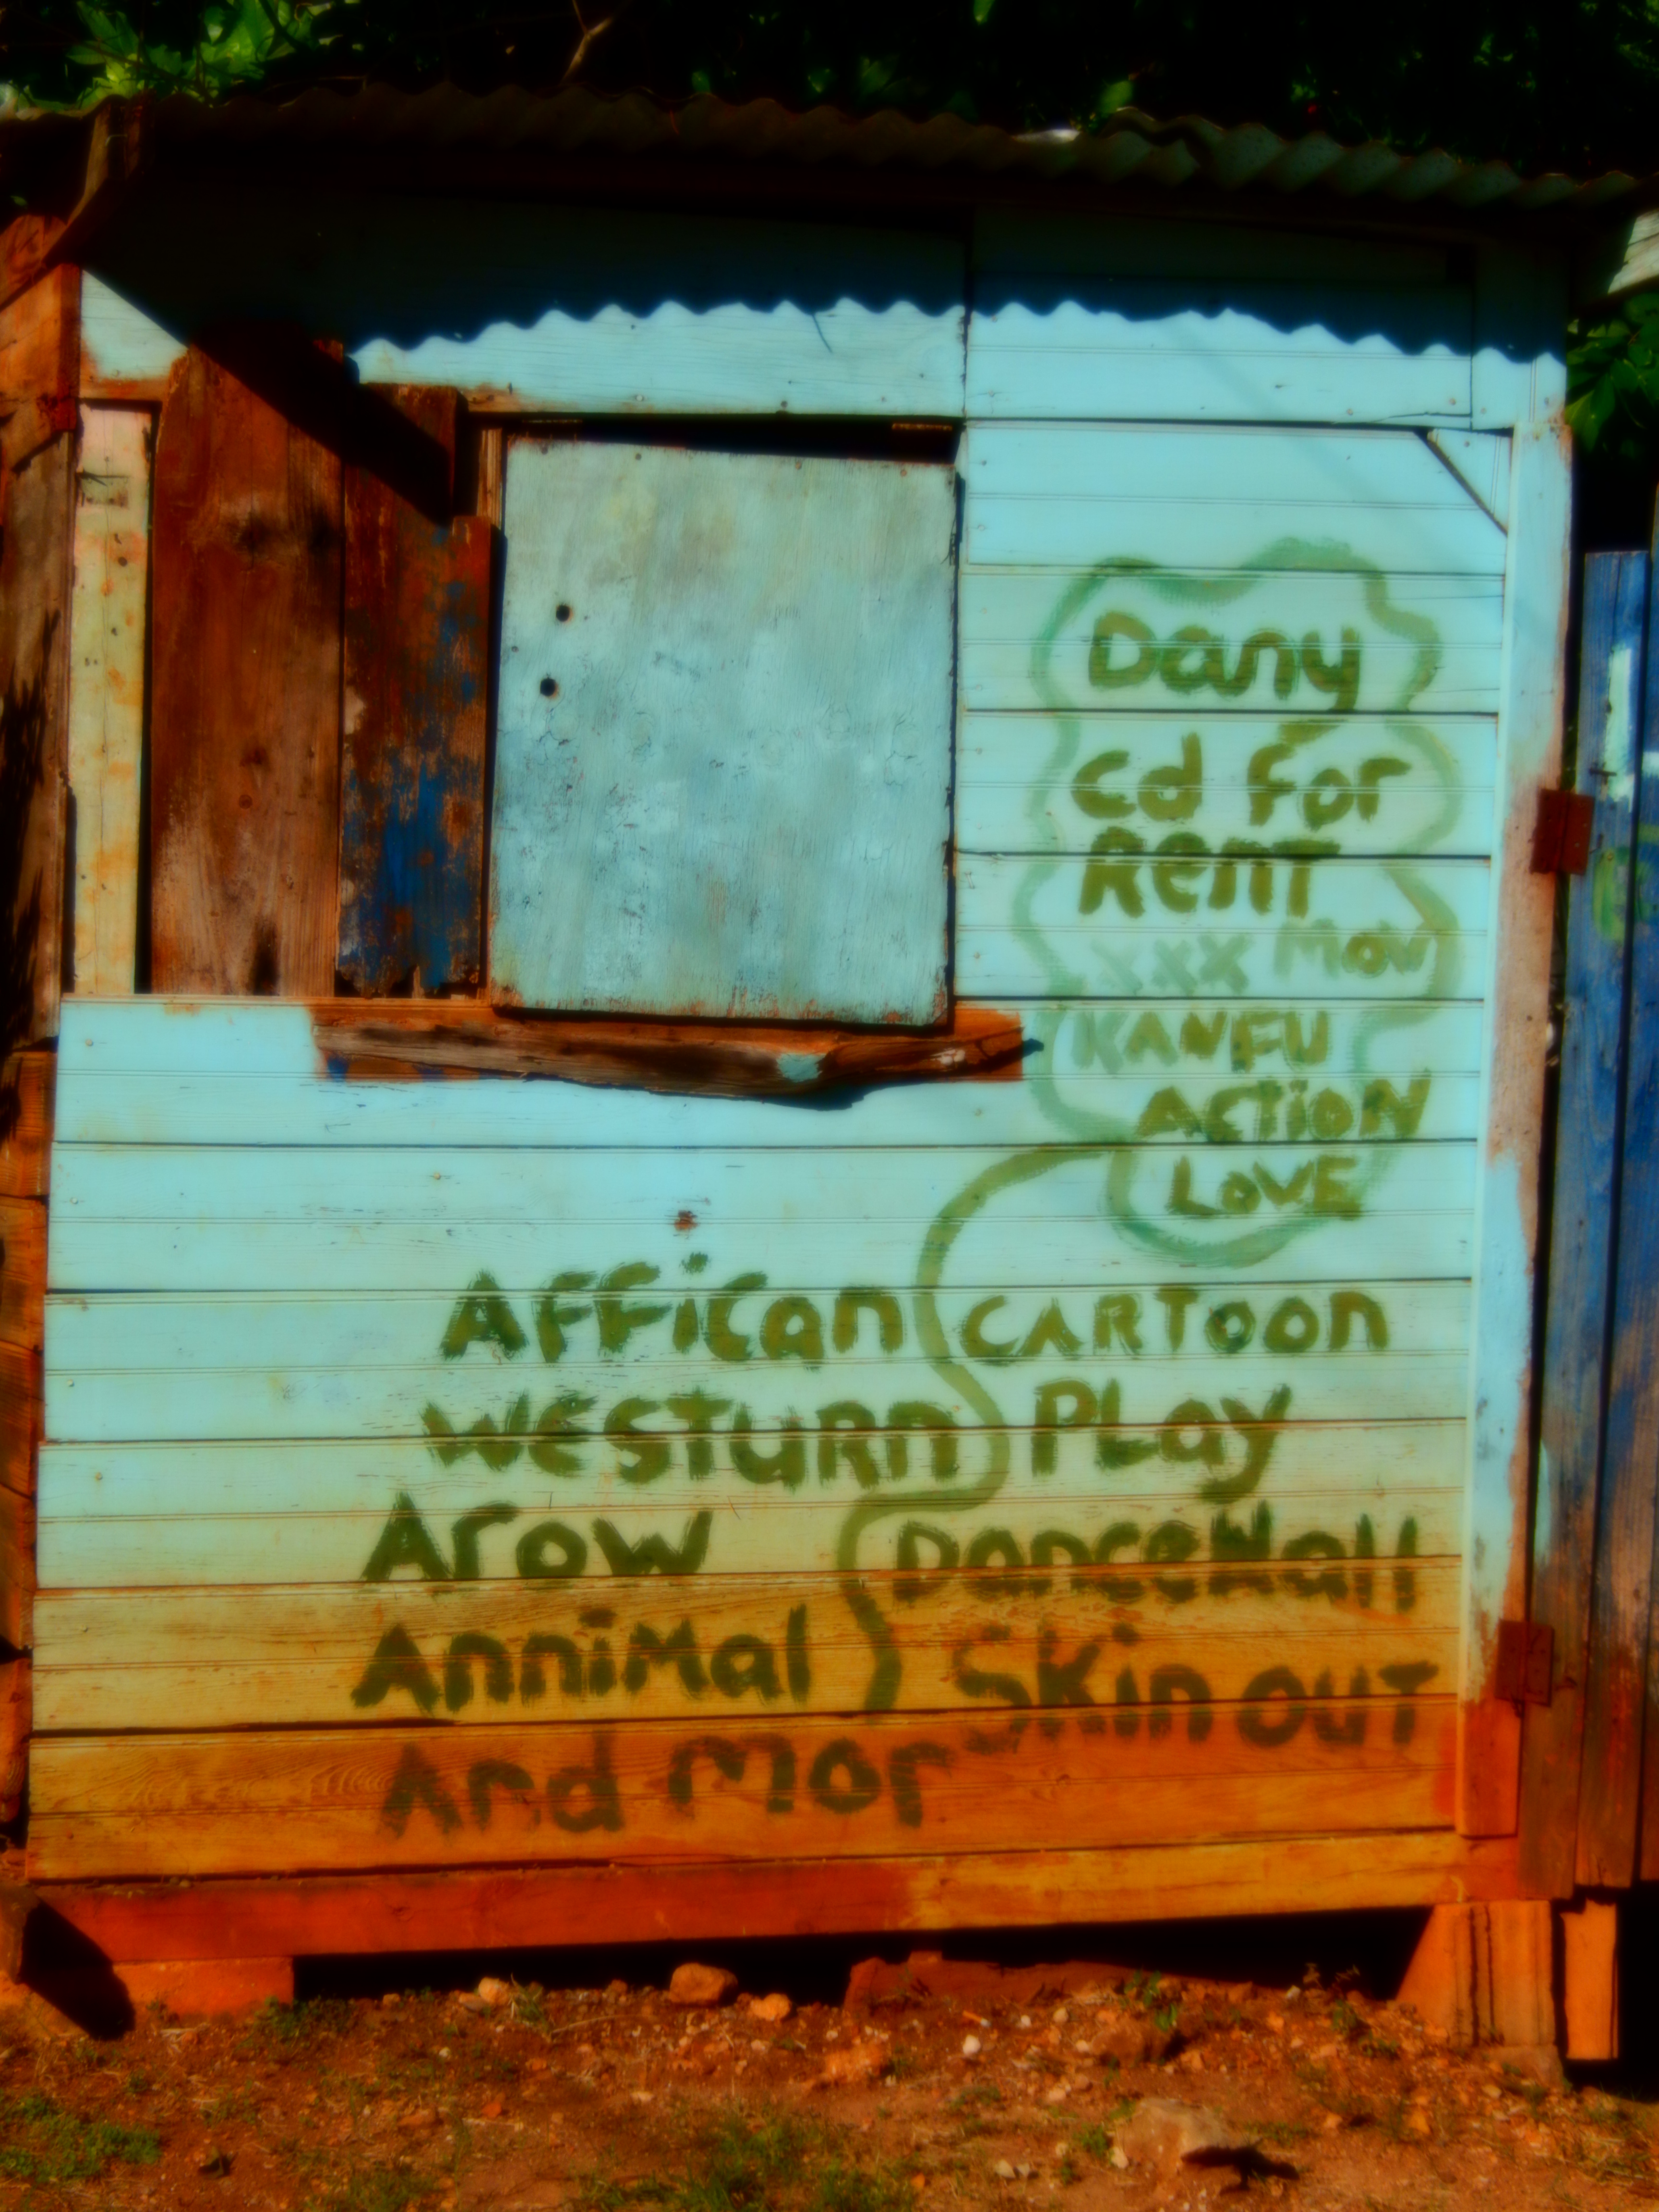 Dany
Cd For
Rent
XXX Mov
KANFU
ACTION
LOVE
AFFiCan
WESTURn
Arow
AnniMal
And mor
CARToon
PLay
DanceHall
SKin OUT